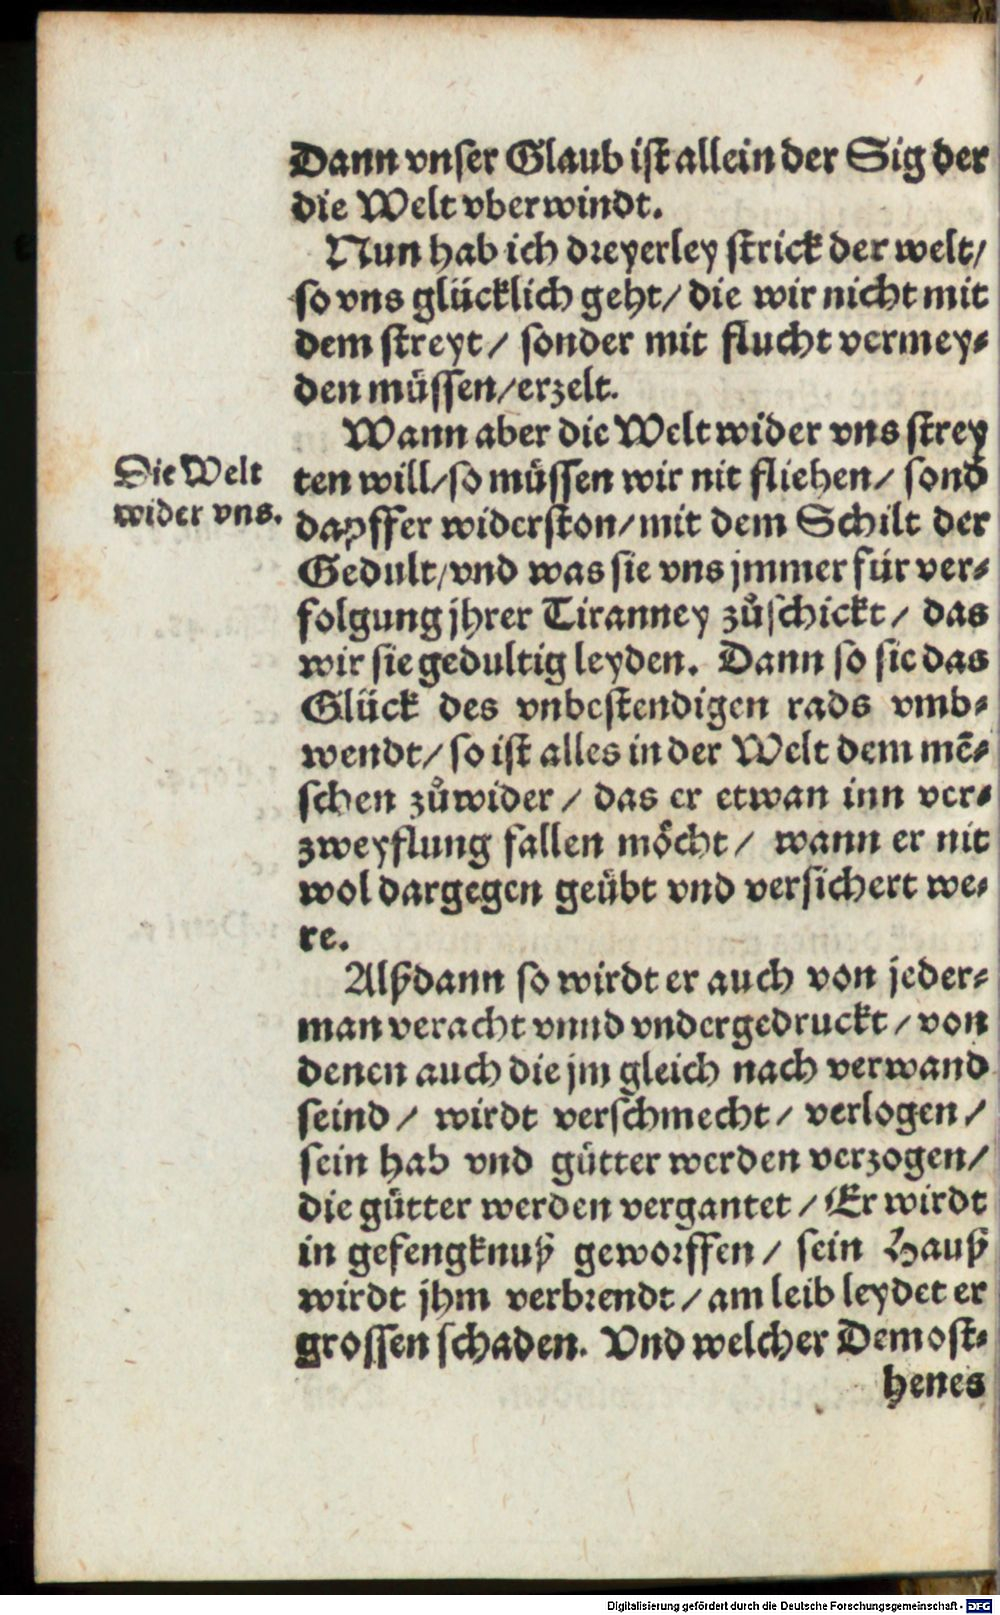 Dann vnser Glaub ist allein der Sig der
die Welt vberwindt.
Nun hab ich dreyerley strick der welt/
so vns glücklich geht/ die wir nicht mit
dem streyt/ sonder mit flucht vermey-
den müssen/erzelt.
Wann aber die Welt wider vns strey
Die Welt
wider vns.
ten will/so müssen wir nit fliehen/ sond̕
dapffer widerston/mit dem Schilt der
Gedult/vnd was sie vns jmmer für ver-
folgung jhrer Tiranney zůschickt/ das
wir sie gedultig leyden. Dann so sie das
Glück des vnbestendigen rads vmb-
wendt/ so ist alles in der Welt dem mẽ-
schen zůwider/ das er etwan inn ver-
zweyflung fallen möcht/ wann er nit
wol dargegen geübt vnd versichert we-
re.
Alßdann so wirdt er auch von jeder-
man veracht vnnd vndergedruckt/ von
denen auch die jm gleich nach verwand
seind/ wirdt verschmecht/ verlogen/
sein hab vnd gütter werden verzogen/
die gütter werden vergantet/ Er wirdt
in gefengknuß geworffen/ sein Hauß
wirdt jhm verbrendt/ am leib leydet er
grossen schaden. Vnd welcher Demost-
henes
Digitalisierung gefördert durch die Deutsche Forschungsgemeinschaft - DFG